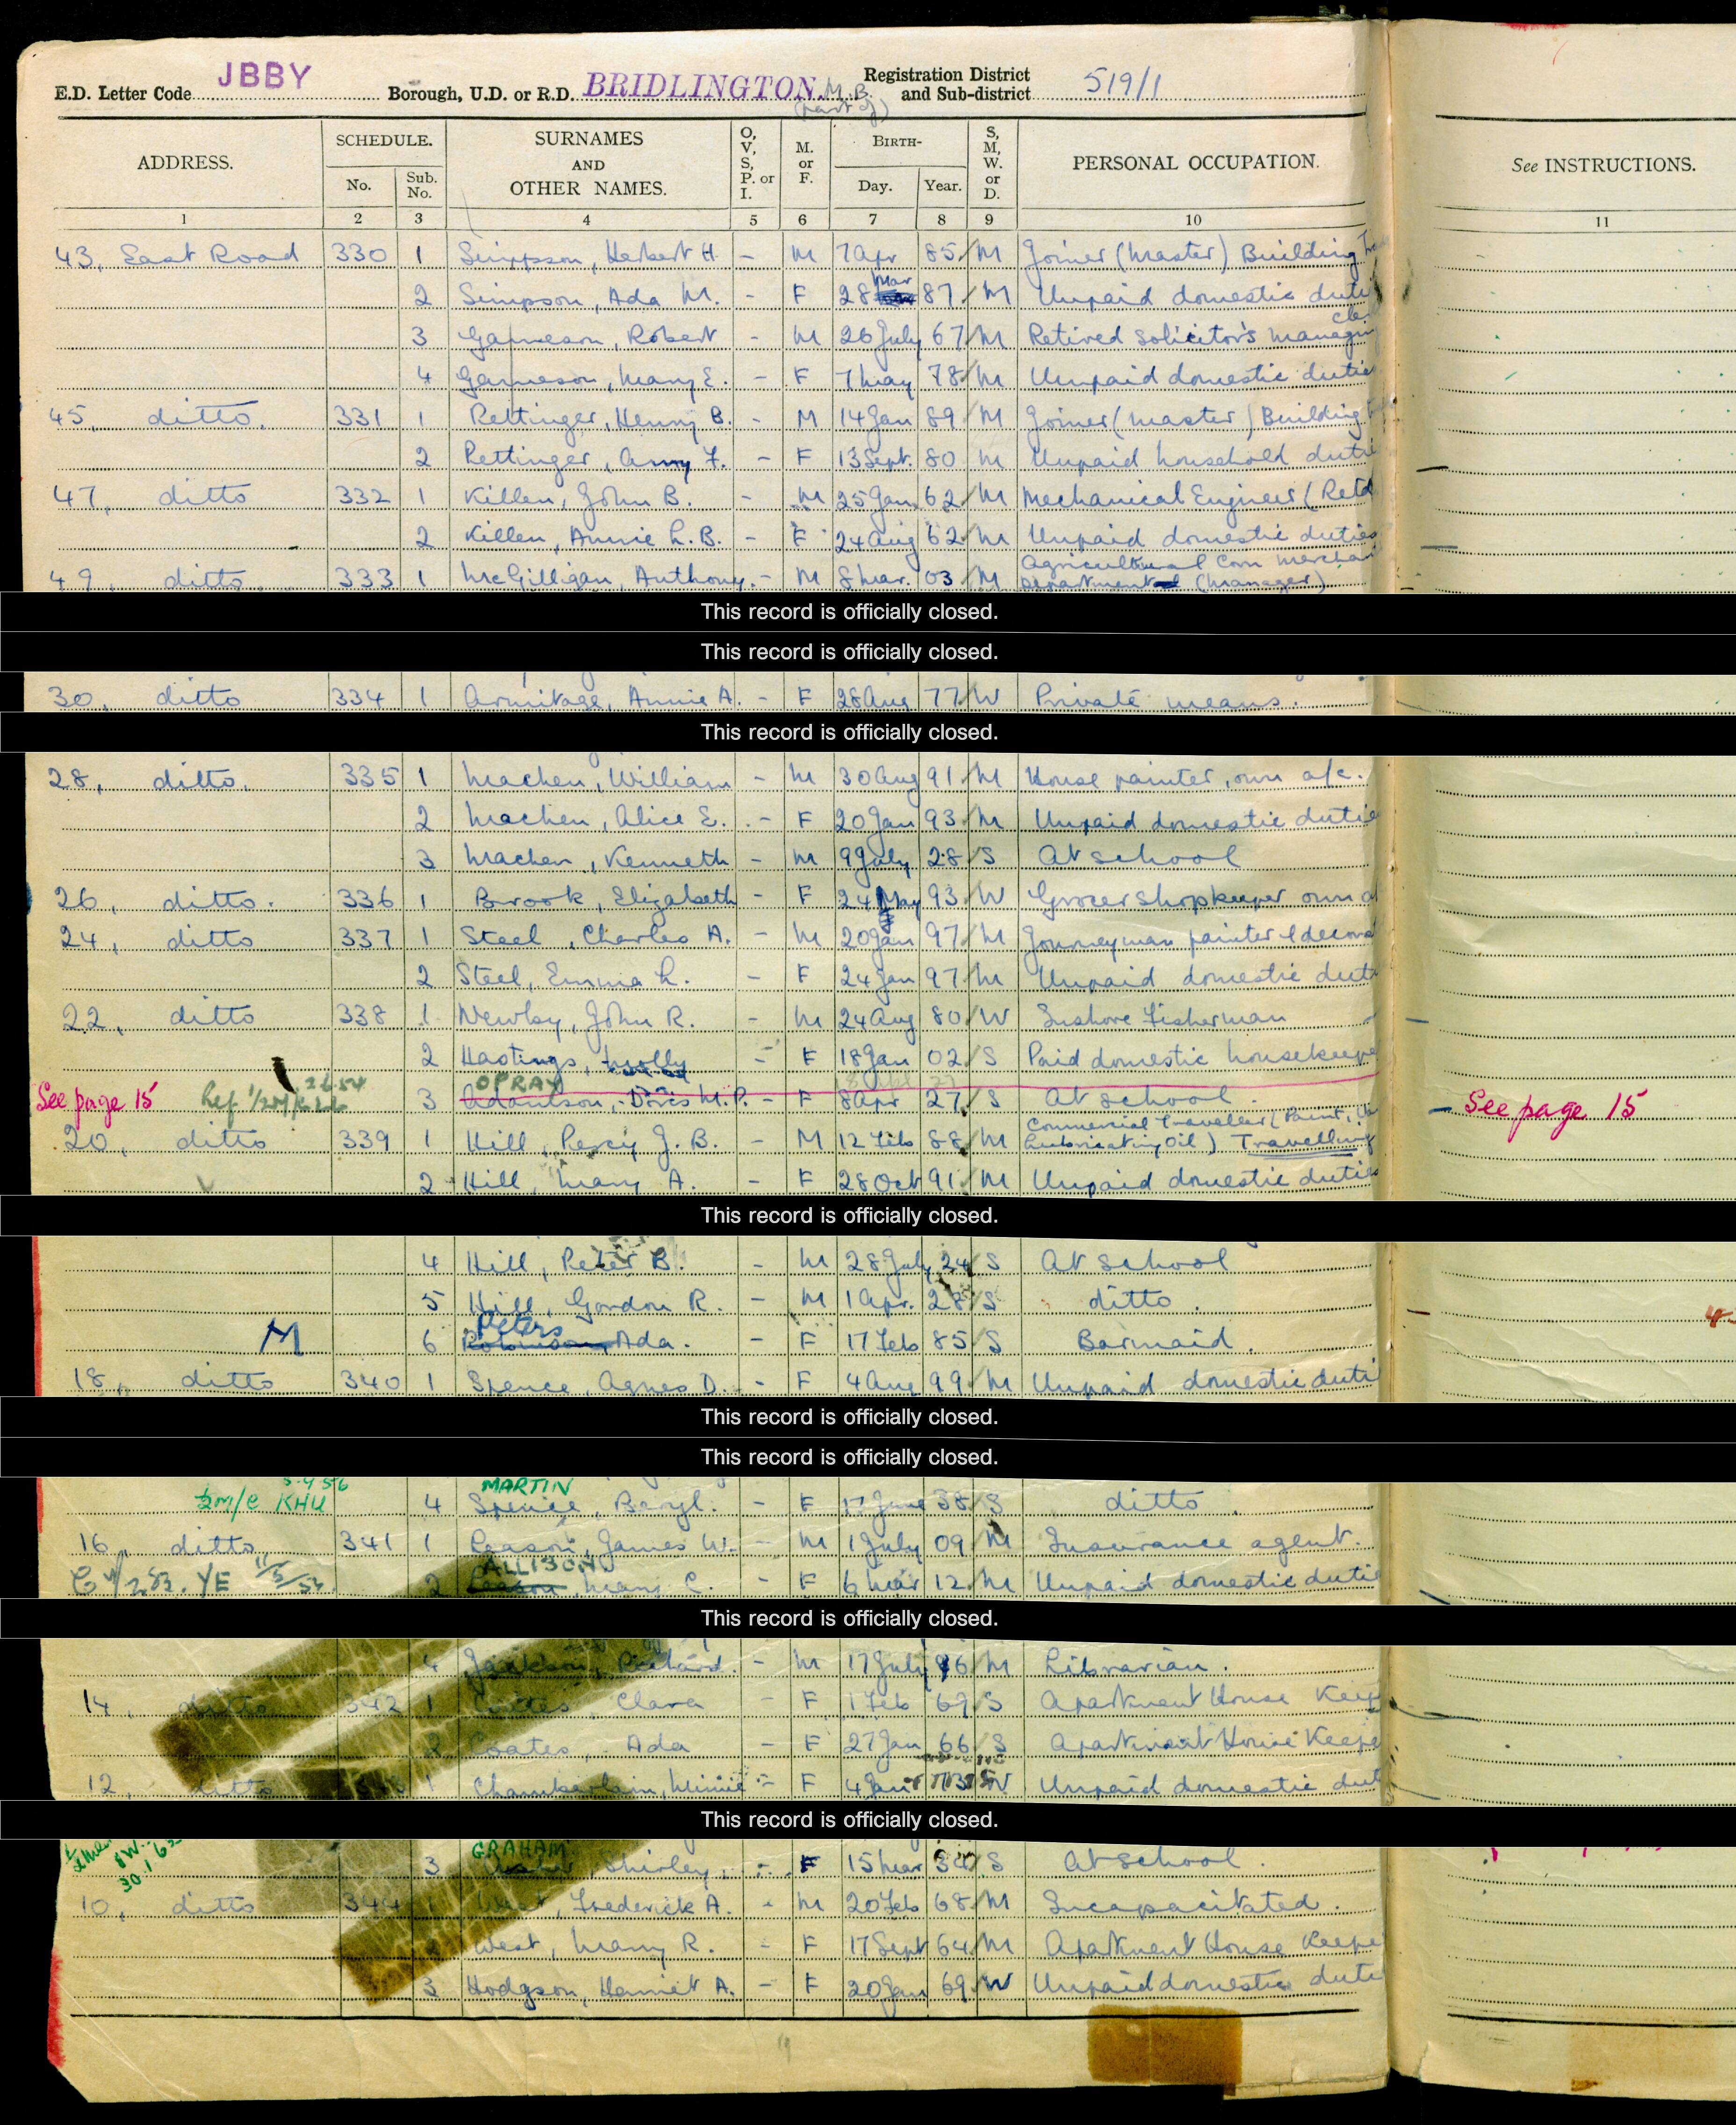 E.D. Letter Code JBBY Borough, U.D. or R.D. BRIDLINGTON. M.B. (part of) Registration District and Sub-district 519/1
ADDRESS. SCHEDULE. No. Sub. No. SURNAMES AND OTHER NAMES. O, V, S, P. or I. M. or F. BIRTH- Day. Year. S, M, W. or D. PERSONAL OCCUPATION. See INSTRUCTIONS.
1 2 3 4 5 6 7 8 9 10 11
43, East Road 330 1 Simpson, Herbert H. - M 7 Apr 85 M Joiner (Master) Building
2 Simpson, Ada M. - F 28 Mar 87 M Unpaid domestic duti
3 Gameson, Robert - M 26 July 67 M Retired Solicitor's managin
4 Gameson, Mary E. - F 7 May 78 M Unpaid domestic dutie
45, ditto. 331 1 Rettinger, Henry B. - M 14 Jan 89 M Joiner (Master) Building
2 Rettinger, Amy F. - F 13 Sept. 80 M Unpaid household duti
47, ditto 332 1 Killen, John B. - M 25 Jan 62 M Mechanical Engineer (Retd
2 Killen, Annie L.B. - F 24 Aug 62 M Unpaid domestic duties
49, ditto 333 1 McGilligan, Anthony. - M 8 Mar. 03 M Agricultural Corn Merchan Department (Manager)
This record is officially closed.
This record is officially closed.
30, ditto 334 1 Armitage, Annie A. - F 28 Aug 77 W Private means.
This record is officially closed.
28, ditto. 335 1 Machen, William - M 30 Aug 91 M House painter, own a/c.
2 Machen, Alice E. - F 20 Jan 93 M Unpaid domestic dutie
3 Machen, Kenneth - M 9 July 28 S At school
26, ditto. 336 1 Brook, Elizabeth - F 24 May 93 W Grocer shopkeeper own a
24, ditto 337 1 Steel, Charles A. - M 20 Jan 97 M Journeyman painter & decora
2 Steel, Emma L. - F 24 Jan 97 M Unpaid domestic duti
22, ditto 338 1 Newby, John R. - M 24 Aug 80 W Inshore Fisherman
2 Hastings, Molly - F 18 Jan 02 S Paid domestic housekeepe
OPRAY
See page 15 3 Adamson, Doris M.P. - F 8 Apr 27 S At school. See page 15
20, ditto 339 1 Hill, Percy J.B. - M 12 Feb 88 M Commercial Traveller (Paint, Lubricating Oil) Travelling
2 Hill, Mary A. - F 28 Oct 91 M Unpaid domestic duties
This record is officially closed.
4 Hill, Peter B. - M 28 July 24 S At school
5 Hill, Gordon R. - M 1 Apr. 28 S ditto.
Peters
M 6 Robinson, Ada. - F 17 Feb 85 S Barmaid.
18, ditto 340 1 Spence, Agnes D. - F 4 Aug 99 M Unpaid domestic duti
This record is officially closed.
This record is officially closed.
5.4.56 MARTIN
KHU 4 Spence, Beryl. - F 17 June 38 S ditto.
16, ditto 341 1 Leason, James W. - M 1 July 09 M Insurance agent.
ALLISON
YE 2 Leason, Mary C. - F 6 Mar 12 M Unpaid domestic dutie
This record is officially closed.
4 Jackson, Richard. - M 17 July 96 M Librarian.
14, ditto 342 1 Coates, Clara - F 1 Feb 69 S Apartment House Keep
2 Coates, Ada - F 27 Jan 66 S Apartment House Keepe
12, ditto 343 1 Chamberlain, Minnie - F 4 Jan 73 W Unpaid domestic dut
This record is officially closed.
GRAHAM
3 Shirley, - F 15 Mar 34 S At school.
10, ditto 344 1 West, Frederick A. - M 20 Feb 68 M Incapacitated.
West, Mary R. - F 17 Sept 64 M Apartment House Keepe
3 Hodgson, Harriet A. - F 20 Jan 69 W Unpaid domestic duti